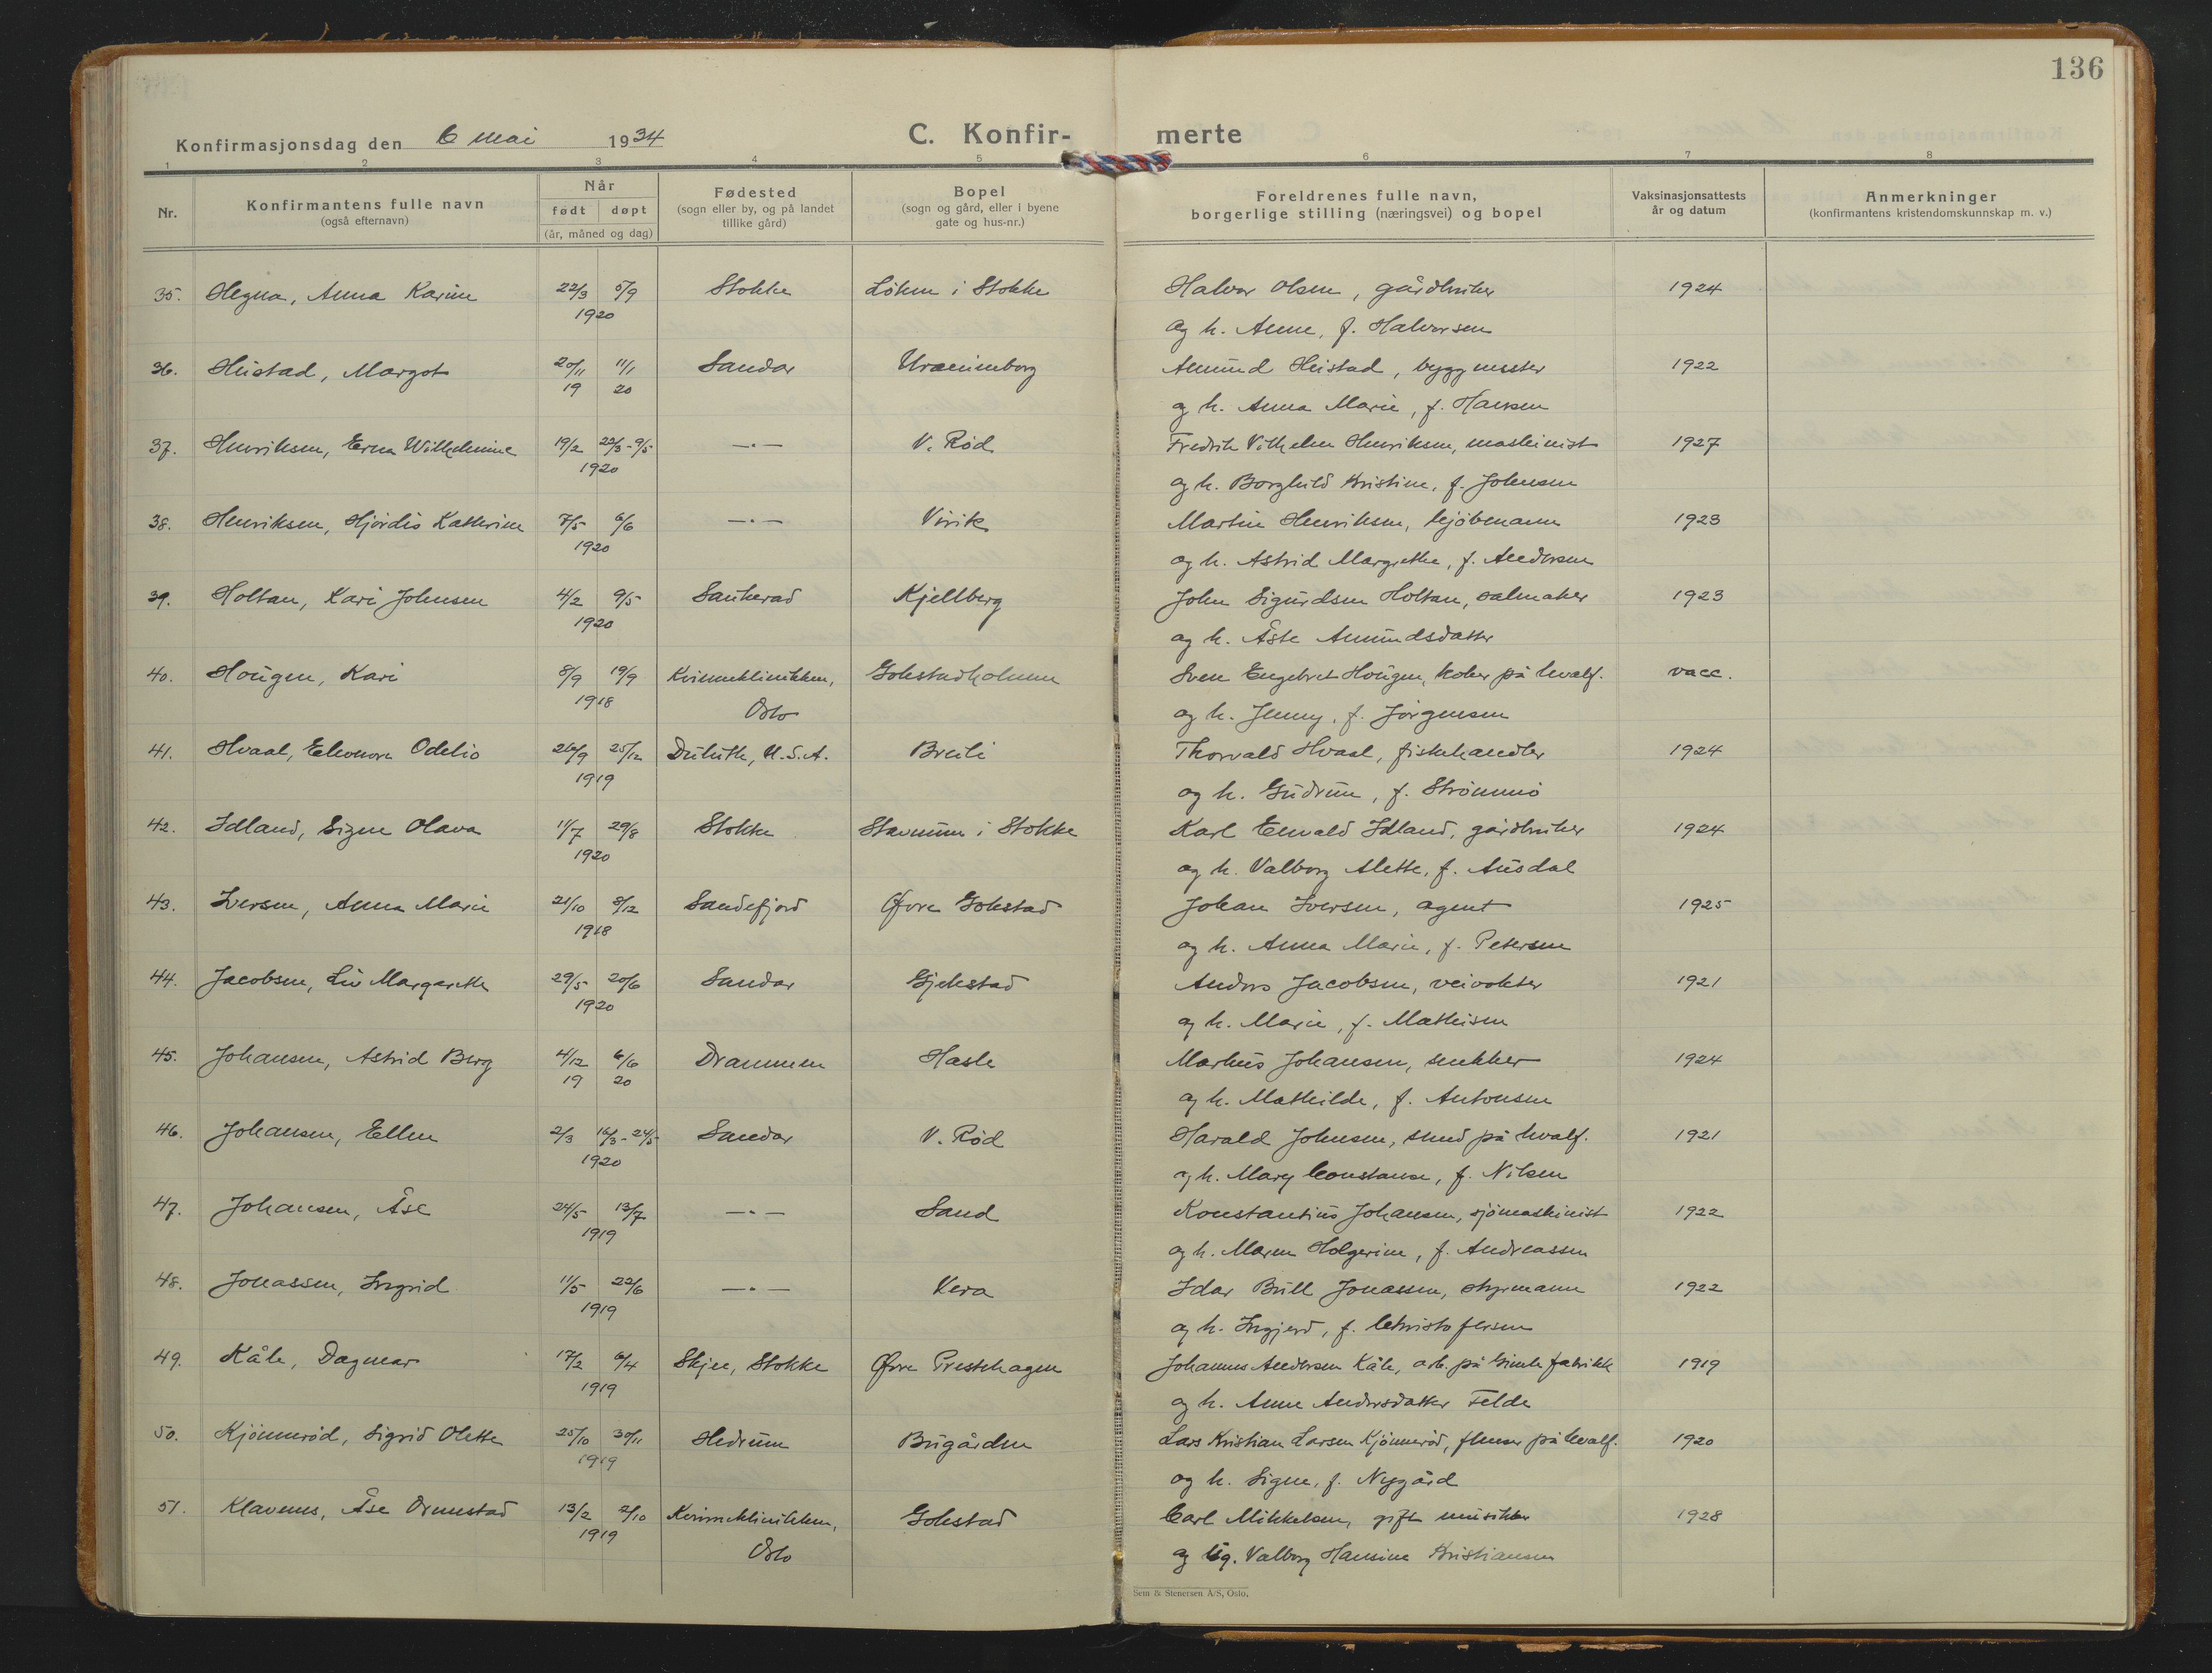 136
Konfirmasjonsdag den 6 mai 1934 C. Konfir- merte
1 2 3 4 5 6 7 8
Nr. Konfirmantens fulle navn (også efternavn) Når født døpt (år, måned og dag) Fødested (sogn eller by, og på landet tillike gård) Bopel (sogn og gård, eller i byene gate og hus-nr.) Foreldrenes fulle navn, borgerlige stilling (næringsvei) og bopel Vaksinasjonsattests år og datum Anmerkninger (konfirmantens kristendomskunnskap m. v.)
35. Hegna, Anna Karine 22/3 5/9 Stokke Löken i Stokke Halvor Olsen, gårdbruker 1924
1920 og h. Anne, f. Halvorsen
36. Heistad, Margot 20/11 11/1 Sandar Uranienborg Amund Heistad, byggmester 1922
19 20 og h. Anna Marie, f. Hansen
37. Henriksen, Erna Wilhelmine 19/2 22/3-9/5 —·— V. Röd Fredrik Vilhelm Henriksen, maskinist 1927
1920 og h. Borghild Kristine, f. Johnsen
38. Henriksen, Hjördis Kathrine 7/5 6/6 —·— Virik Martin Henriksen, kjöbmann 1923
1920 og h. Astrid Margrethe, f. Andersen
39. Holtan, Kari Johnsen 4/2 9/5 Sauherad Kjellberg John Sigurdsen Holtan, salmaker 1923
1920 og h. Åste Amundsdatter
40. Hougen, Kari 8/9 19/9 Kvinneklinikken, Gokstadholmen Sven Engebret Hougen, koker på hvalf. vacc.
1918 Oslo og h. Jenny, f. Jörgensen
41. Hvaal, Eleonora Odelio 26/9 25/12 Duluth, U.S.A. Breili Thorvald Hvaal, fiskehandler 1924
1919 og h. Gudrun, f. Strömmö
42. Idland, Signe Olava 11/7 29/8 Stokke Stavnum i Stokke Karl Enwald Idland, gårdbruker 1924
1920 og h. Valborg Alette, f. Ausdal
43. Iversen, Anna Marie 21/10 8/12 Sandefjord Øvre Gokstad Johan Iversen, agent 1925
1918 og h. Anna Marie, f. Petersen
44. Jacobsen, Liv Margarethe 29/5 20/6 Sandar Gjekstad Anders Jacobsen, veivokter 1921
1920 og h. Marie, f. Mathisen
45. Johansen, Astrid Berg 4/12 6/6 Drammen Hasle Markus Johansen, snekker 1924
19 20 og h. Mathilde, f. Antonsen
46. Johansen, Ellen 2/3 16/3-24/5 Sandar V. Röd Harald Johnsen, smed på hvalf. 1921
1920 og h. Mary Constanse, f. Nilsen
47. Johansen, Åse 24/5 13/7 —·— Sand Konstantius Johansen, sjömaskinist 1922
1919 og h. Maren Holgerine, f. Andreassen
48. Jonassen, Ingrid 11/5 22/6 —·— Vera Idar Bull Jonassen, styrmann 1922
1919 og h. Ingjerd, f. Christofersen
49. Kåle, Dagmar 17/2 6/4 Skjee, Stokke Øvre Prestehagen Johannes Andersen Kåle, arb. på Gimle fabrikk 1919
1919 og h. Anne Andersdatter Felde
50. Kjönneröd, Sigrid Olette 25/10 30/11 Hedrum Bugården Lars Kristian Larsen Kjönneröd, flenser på hvalf. 1920
1919 og h. Signe, f. Nygård
51. Klavenes, Åse Ormestad 13/2 2/10 Kvinneklinikken, Gokstad Carl Mikkelsen, gift musiker 1928
1919 Oslo og ug. Valborg Hansine Kristiansen
Sem & Stenersen A/S, Oslo.